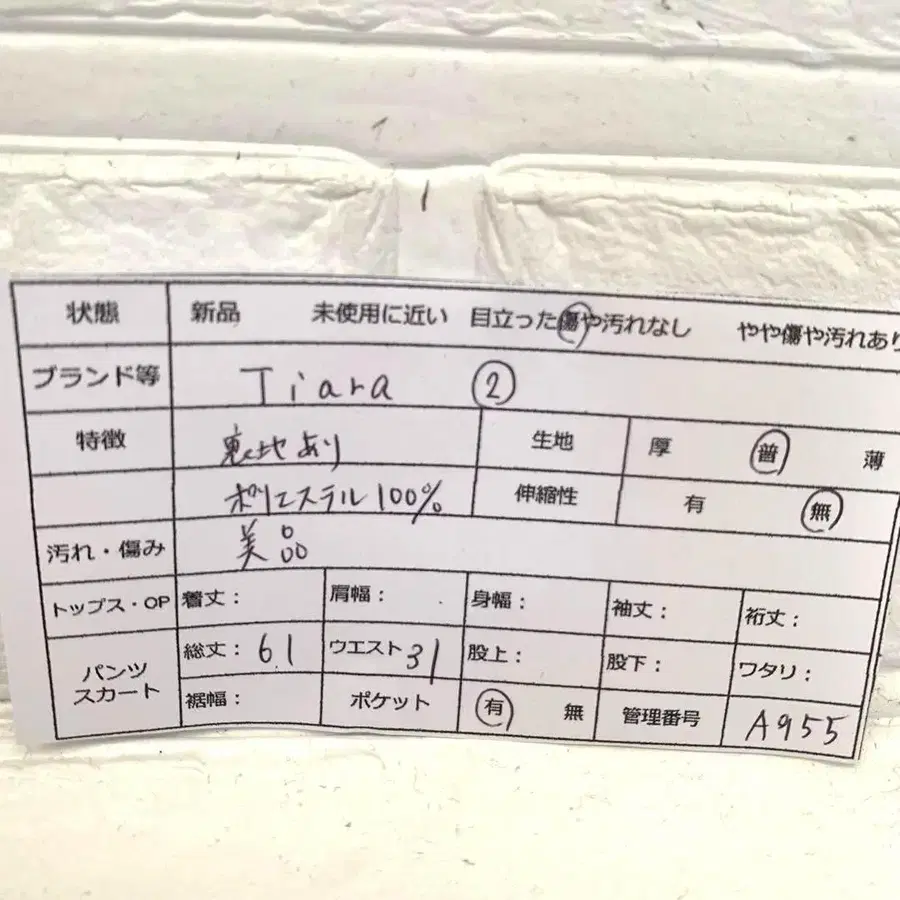 状態 新品 未使用に近い 目立った傷や汚れなし やや傷や汚れあり
ブランド等 Tiara ②
特徴 裏地あり 生地 厚 普 薄
ポリエステル100% 伸縮性 有 無
汚れ・傷み 美品
トップス・OP 着丈： 肩幅： 身幅： 袖丈： 裄丈：
パンツ スカート 総丈：61 ウエスト31 股上： 股下： ワタリ：
裾幅： ポケット 有 無 管理番号 A955